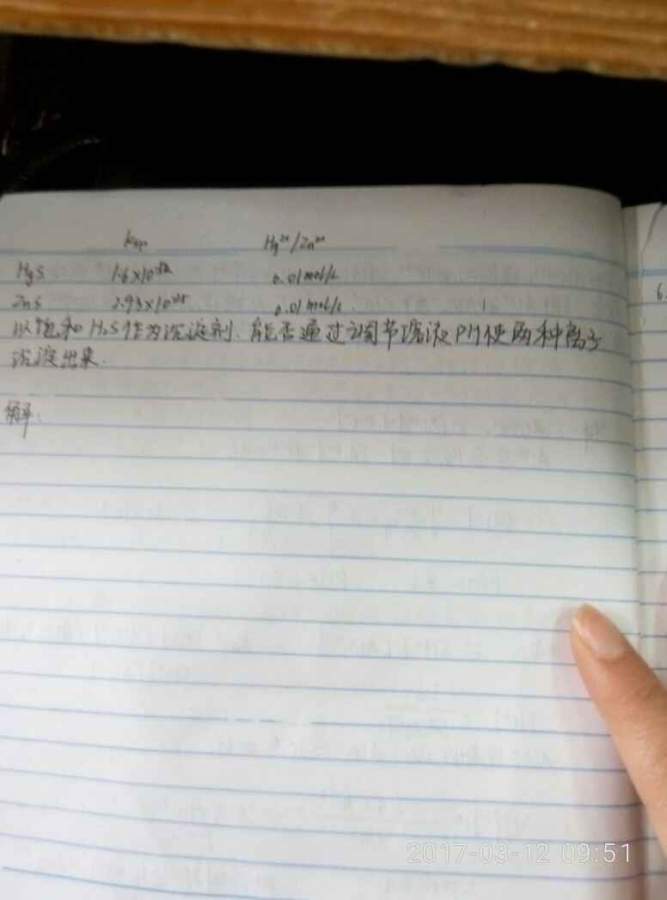 Ksp Hg²⁺/Zn²⁺
HgS 1.6×10⁻⁵² 0.01mol/L
ZnS 2.93×10⁻²⁵ 0.01mol/L
以饱和H₂S作为沉淀剂.能否通过调节溶液PH使两种离子
沉淀出来.
解:
6.
2017-03-12 09:51